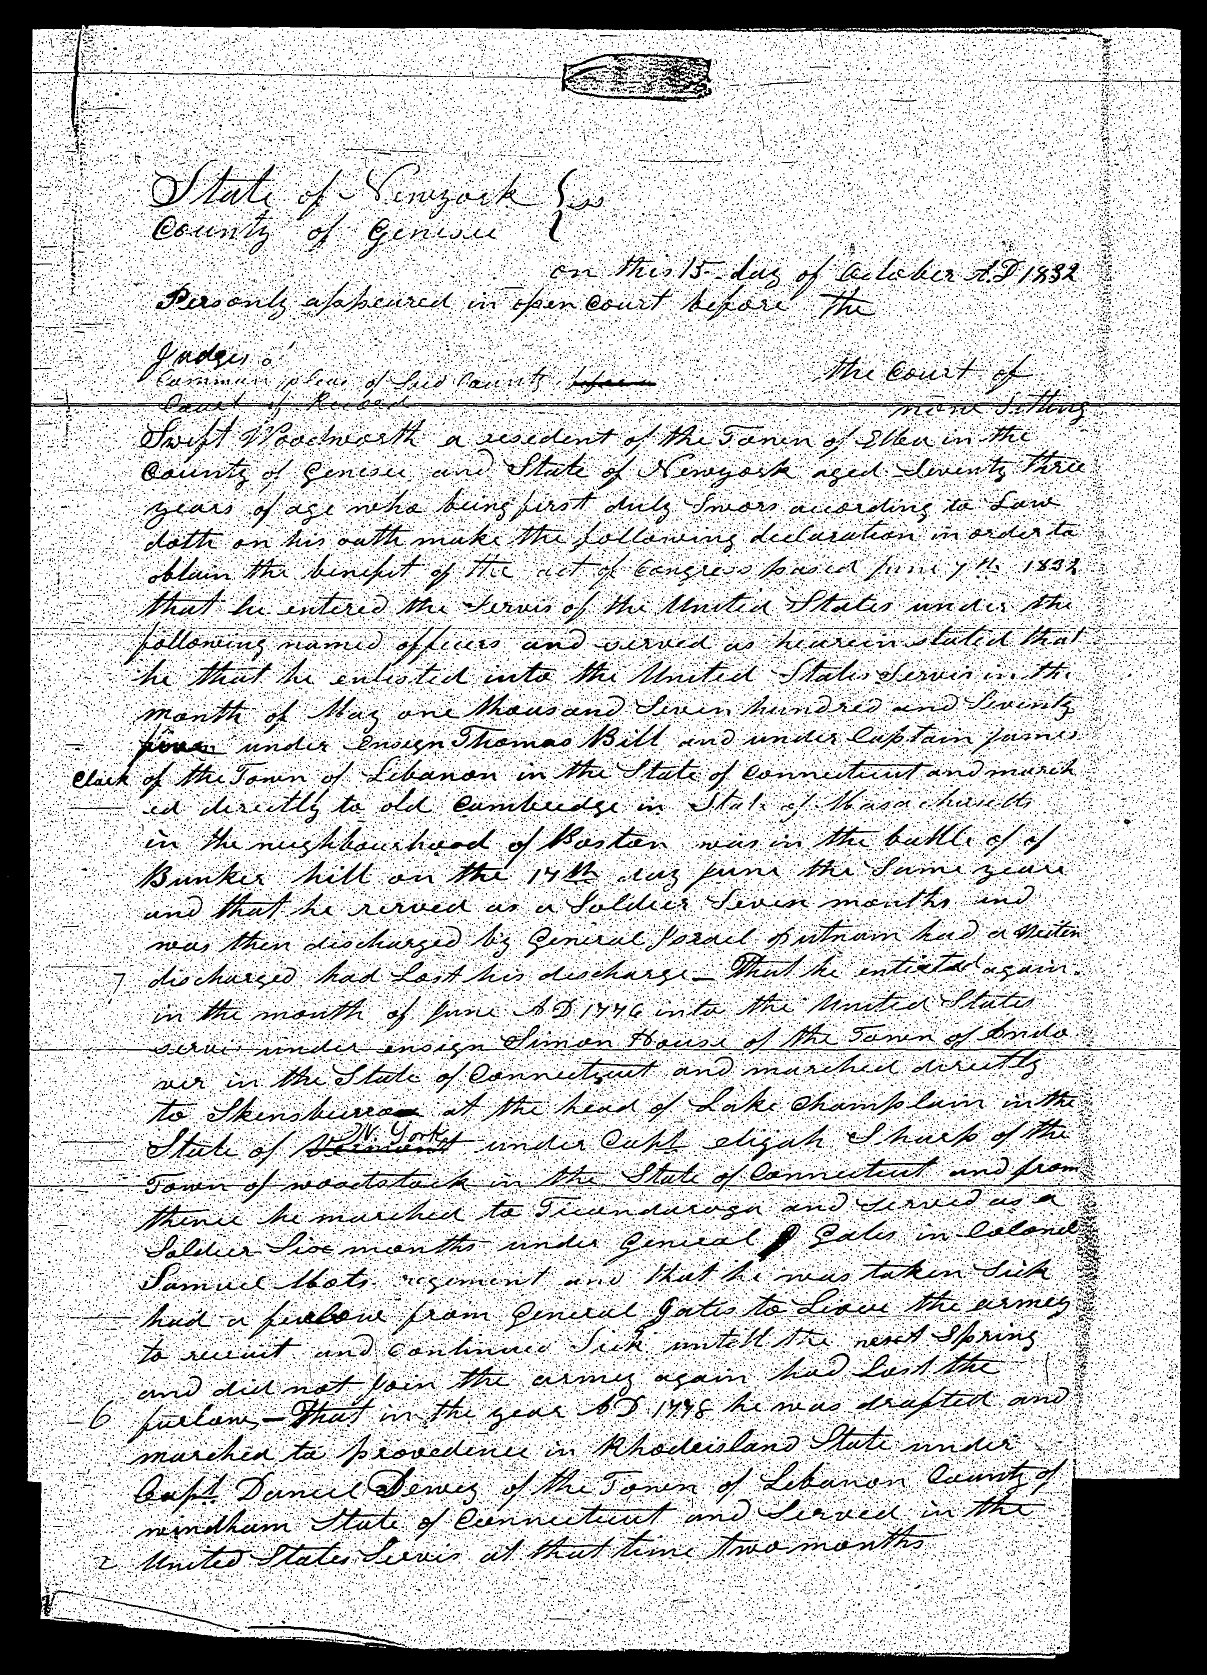 State of Newyork } ss
County of Genesee
on this 15 day of October A.D 1832
Personly appeared in open Court before the
Judges of
the Court of
Common pleas of Sed County
Court of Record
now Sitting
Swift Woodworth a resedent of the Town of Elba in the
County of Genesee and State of Newyork aged Seventy three
years of age who being first duly Swors according to Law
doth on his oath make the following declaration in order to
obtain the benefit of the act of Congress passed June 7th 1832
that he entered the Servis of the United States under the
following named officers and served as hearein stated that
he that he enlisted into the United States Servis in the
month of May one thousand Seven hundred and Seventy
five under Ensign Thomas Bill and under Captain James
Clark of the Town of Lebanon in the State of Connecticut and march
ed directly to old Cambredge in State of Masachusetts
in the neighbourhood of Boston was in the battle of of
Bunker hill on the 17th day June the Same yeare
and that he served as a Soldier Seven months and
was then discharged by General Israel Putnam had a
7 discharged had Lost his discharge — That he entisted again
in the month of June AD 1776 into the United States
servis under ensign Simon House of the Town of Ando
ver in the State of Connecticut and marched directly
to Skensburro at the head of Lake Champlain in the
N. York
State of Vermont under Capt elijah Sharp of the
Town of woodstock in the State of Connecticut and from
thence he marched to Ticondaroga and served as a
Soldier Six months under General Gates in Colonel
Samuel Mots regiment and that he was taken Sick
had a furlow from General Gates to Lieve the armey
to recruit and Continued Sick untill the next Spring
and did not Join the armey again had Lost the
6 furlow — That in the year AD 1778 he was drafted and
marched to provedence in Rhodeisland State under
Capt Daniel Dewey of the Town of Lebanon County of
windham State of Connecticut and Served in the
2 United States Servis at that time two months